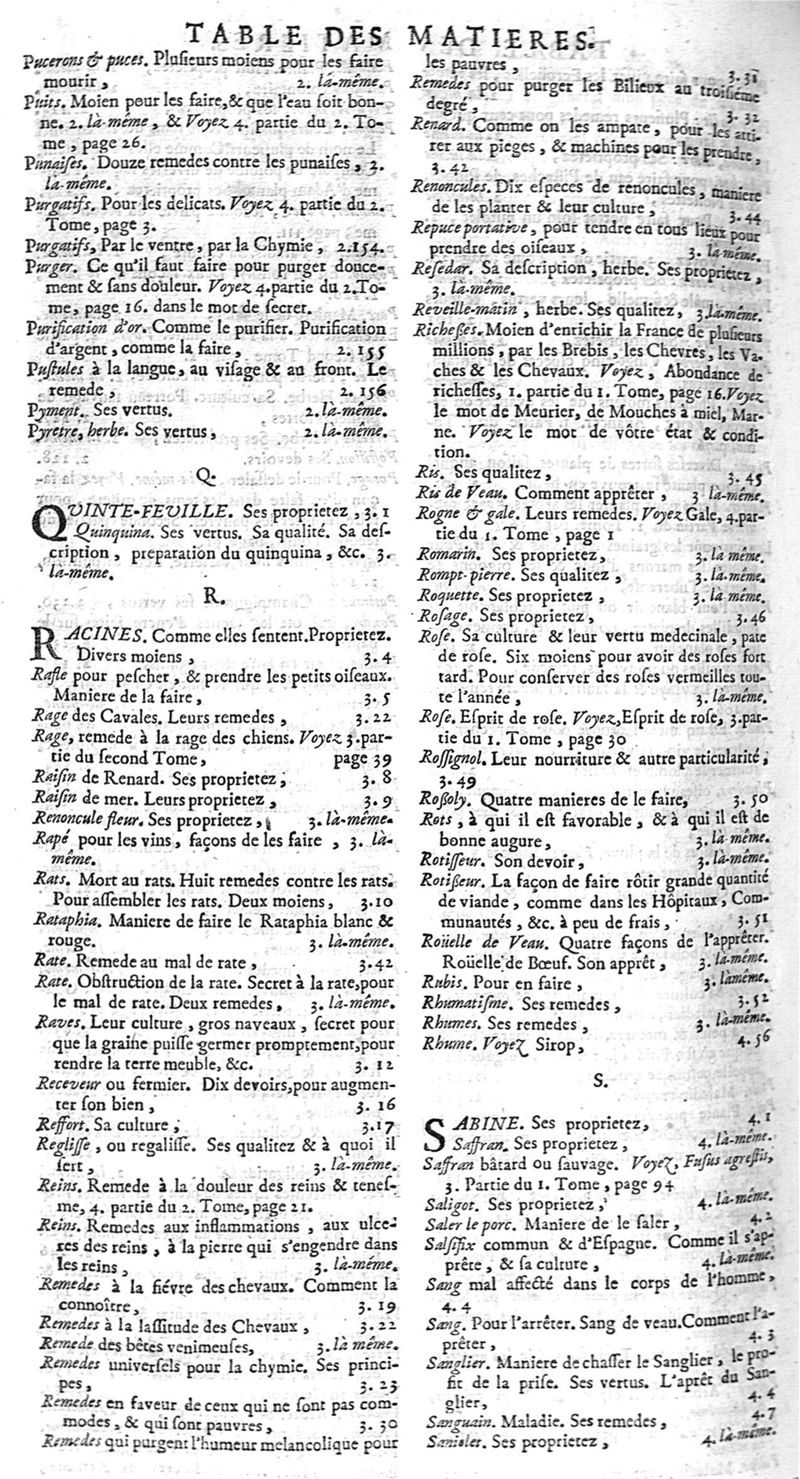 TABLE DES MATIERES.
Pucerons & puces. Pluſieurs moiens pour les faire
mourir, 2. là-même.
Puits. Moien pour les faire, & que l'eau ſoit bon-
ne. 2. là-même, & Voyez 4. partie du 2. To-
me, page 26.
Punaiſes. Douze remedes contre les punaiſes, 2.
là-même.
Purgatifs. Pour les delicats. Voyez 4. partie du 2.
Tome, page 3.
Purgatifs, Par le ventre, par la Chymie, 2.154.
Purger. Ce qu'il faut faire pour purger douce-
ment & ſans douleur. Voyez 4. partie du 2. To-
me, page 16. dans le mot de ſecret.
Purification d'or. Comme le purifier. Purification
d'argent, comme la faire, 2. 155
Puſtules à la langue, au viſage & au front. Le
remede, 2. 156
Pyment. Ses vertus. 2. là-même.
Pyretre, herbe. Ses vertus, 2. là-même.
Q.
QUINTE-FEUILLE. Ses proprietez, 3. 1
Quinquina. Ses vertus. Sa qualité. Sa deſ-
cription, preparation du quinquina, &c. 3.
là-même.
R.
RACINES. Comme elles ſentent. Proprietez.
Divers moiens, 3. 4
Rafle pour peſcher, & prendre les petits oiſeaux.
Maniere de la faire, 3. 5
Rage des Cavales. Leurs remedes, 3. 22
Rage, remede à la rage des chiens. Voyez 3. par-
tie du ſecond Tome, page 39
Raiſin de Renard. Ses proprietez, 3. 8
Raiſin de mer. Leurs proprietez, 3. 9
Renoncule fleur. Ses proprietez, 3. là-même.
Rapé pour les vins, façons de les faire, 3. là-
même.
Rats. Mort au rats. Huit remedes contre les rats.
Pour aſſembler les rats. Deux moiens, 3.10
Rataphia. Maniere de faire le Rataphia blanc &
rouge. 3. là-même.
Rate. Remede au mal de rate, 3.42
Rate. Obſtruction de la rate. Secret à la rate, pour
le mal de rate. Deux remedes, 3. là-même.
Raves. Leur culture, gros naveaux, ſecret pour
que la graine puiſſe germer promptement, pour
rendre la terre meuble, &c. 3. 12
Receveur ou fermier. Dix devoirs, pour augmen-
ter ſon bien, 3. 16
Reffort. Sa culture, 3.17
Regliſſe, ou regaliſſe. Ses qualitez & à quoi il
ſert, 3. là-même.
Reins. Remede à la douleur des reins & teneſ-
me, 4. partie du 2. Tome, page 21.
Reins. Remedes aux inflammations, aux ulce-
res des reins, à la pierre qui s'engendre dans
les reins, 3. là-même.
Remedes à la fiévre des chevaux. Comment la
connoître, 3. 19
Remedes à la laſſitude des Chevaux, 3. 22
Remede des bêtes venimeuſes, 3. là même.
Remedes univerſels pour la chymie. Ses princi-
pes, 3. 23
Remedes en faveur de ceux qui ne ſont pas com-
modes, & qui ſont pauvres, 3. 30
Remedes qui purgent l'humeur melancolique pour
les pauvres, 3. 31
Remedes pour purger les Bilieux au troiſiéme
degré, 3. 32
Renard. Comme on les ampate, pour les atti-
rer aux pieges, & machines pour les prendre,
3. 42
Renoncules. Dix eſpeces de renoncules, maniere
de les planter & leur culture, 3. 44
Repuce portative, pour tendre en tous lieux pour
prendre des oiſeaux, 3. là même.
Reſedar. Sa deſcription, herbe. Ses proprietez,
3. là-même.
Reveille-matin, herbe. Ses qualitez, 3. là-même.
Richeßes. Moien d'enrichir la France de pluſieurs
millions, par les Brebis, les Chevres, les Va-
ches & les Chevaux. Voyez, Abondance de
richeſſes, 1. partie du 1. Tome, page 16. Voyez
le mot de Meurier, de Mouches à miel, Mar-
ne. Voyez le mot de vôtre état & condi-
tion.
Ris. Ses qualitez, 3. 45
Ris de Veau. Comment apprêter, 3 là-même.
Rogne & gale. Leurs remedes. Voyez Gale, 4. par-
tie du 1. Tome, page 1
Romarin. Ses proprietez, 3. là même.
Rompt-pierre. Ses qualitez, 3. là-même.
Roquette. Ses proprietez, 3. là même.
Roſage. Ses proprietez, 3. 46
Roſe. Sa culture & leur vertu medecinale, pate
de roſe. Six moiens pour avoir des roſes fort
tard. Pour conſerver des roſes vermeilles tou-
te l'année, 3. là-même.
Roſe. Eſprit de roſe. Voyez, Eſprit de roſe, 3. par-
tie du 1. Tome, page 30
Roſſignol. Leur nourriture & autre particularité,
3. 49
Roßoly. Quatre manieres de le faire, 3. 50
Rots, à qui il eſt favorable, & à qui il eſt de
bonne augure, 3. là même.
Rotiſſeur. Son devoir, 3. là-même.
Rotißeur. La façon de faire rôtir grande quantité
de viande, comme dans les Hôpitaux, Com-
munautés, &c. à peu de frais, 3. 51
Roüelle de Veau. Quatre façons de l'apprêter.
Roüelle de Bœuf. Son apprêt, 3. là-même.
Rubis. Pour en faire, 3. làmême.
Rhumatiſme. Ses remedes, 3. 52
Rhumes. Ses remedes, 3. là-même.
Rhume. Voyez Sirop, 4. 56
S.
SABINE. Ses proprietez, 4. 1
Saffran. Ses proprietez, 4. là-même.
Saffran bâtard ou ſauvage. Voyez, Fuſus agreſtis,
3. Partie du 1. Tome, page 94
Saligot. Ses proprietez, 4. là-même.
Saler le porc. Maniere de le ſaler, 4. 2
Salſifix commun & d'Eſpagne. Comme il s'ap-
prête, & ſa culture, 4. là-même.
Sang mal affecté dans le corps de l'homme,
4. 4
Sang. Pour l'arrêter. Sang de veau. Comment l'a-
prêter, 4. 3
Sanglier. Maniere de chaſſer le Sanglier, le pro-
fit de la priſe. Ses vertus. L'aprêt du San-
glier, 4. 4
Sanguain. Maladie. Ses remedes, 4. 7
Sanioler. Ses proprietez, 4. là-même.